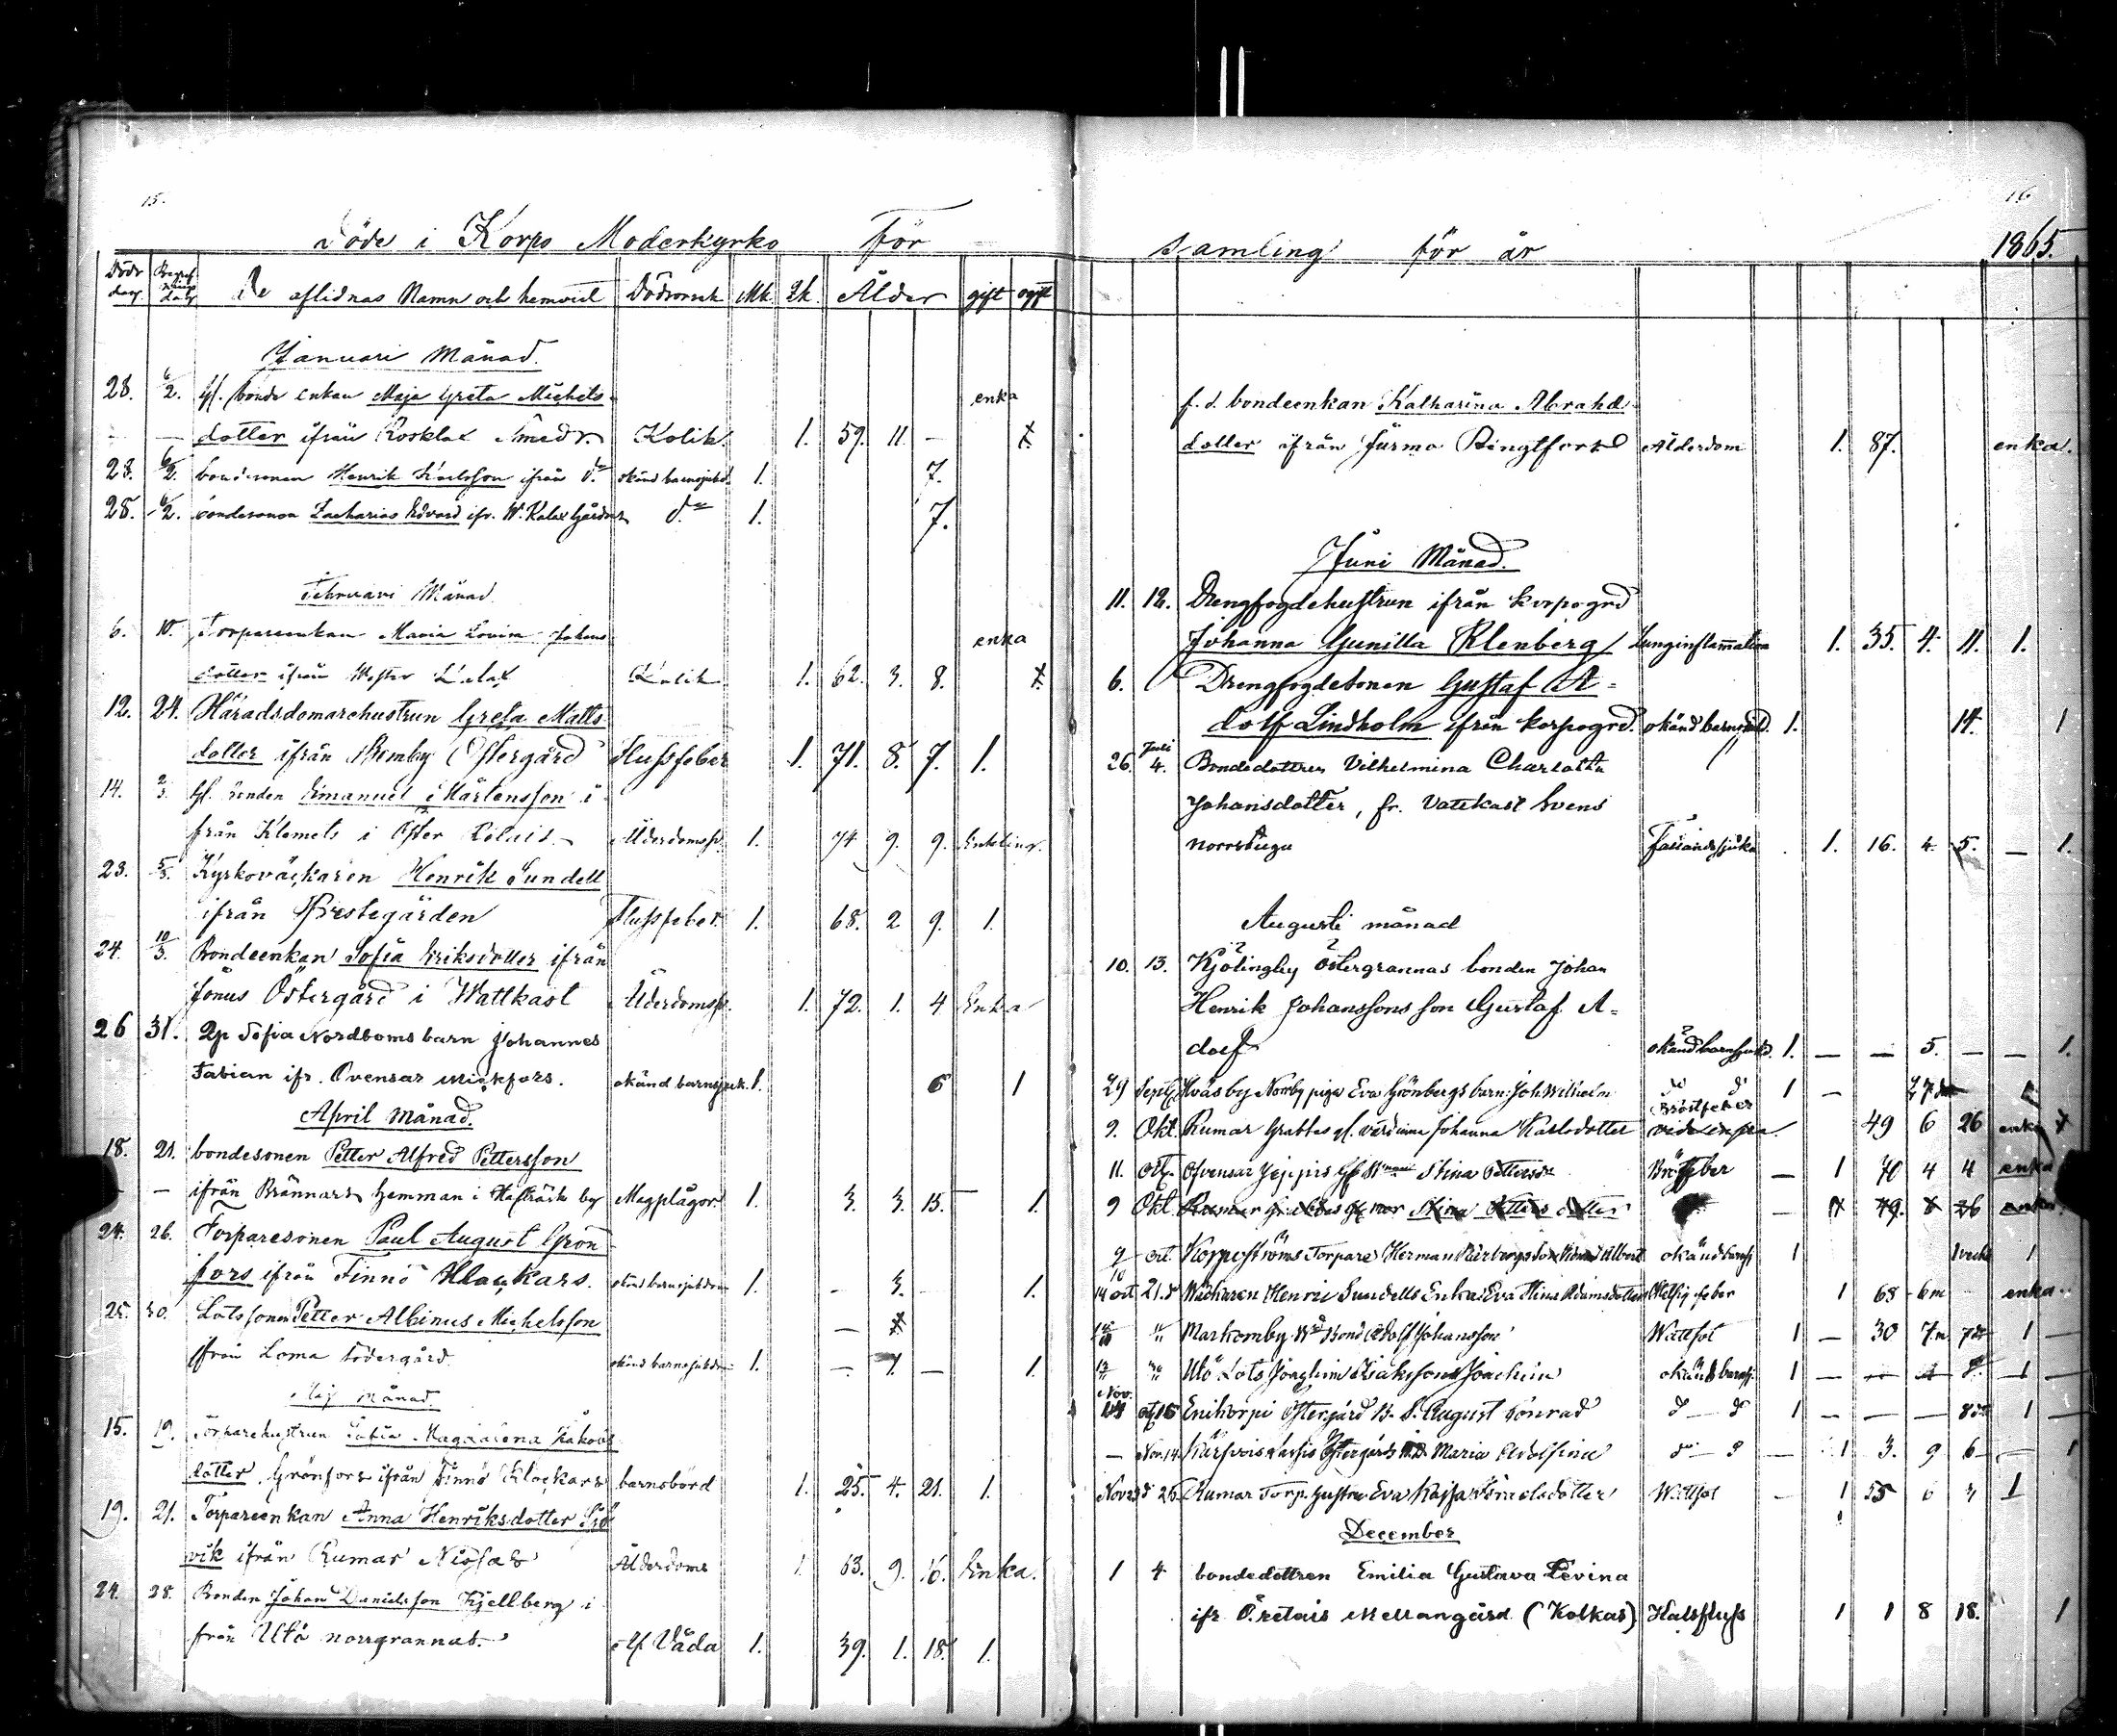 15.
Döde i Korpo Moderkyrko för
Döds dag Begrafnings dag De aflidnas Namn och hemvist Dödsorsak Mk. Qk. Ålder gift ogift
Januari Månad.
28. 6/2. Gl. bonde enkan Maja Greta Michels enka
dotter ifrån Rosklax Smeds Kolik. 1. 59. 11. —
28. 6/2. bondesonen Henrik Karlsson ifrån d:o okänd barnsjukd. 1. 7.
28. 6/2. bondesonen Zacharias Edvard ifr. W. Kalax Gårdnes d:o 1. 7.
Februari Månad.
6. 10. Torpareenkan Maria Lovisa Johans enka
dotter ifrån Wester Kalax Kolik 1. 62. 3. 8.
12. 24. Häradsdomarehustrun Greta Matts
dotter ifrån Rumby Östergård Flussfeber 1. 71. 8. 7. 1.
14. 2/3. Gl. bonden Emanuel Mårtensson i
från Klemets i Öster Retais Ålderdomssv. 1. 74 9. 9. Enkling.
23. 5/3. Kyrkoväckaren Henrik Sundell
ifrån Prestegården Flussfeber. 1. 68. 2 9. 1.
24. 10/3. Bondeenkan Sofia Eriksdotter ifrån
Jonus Östergård i Wattkast Ålderdomssv. 1. 72. 1. 4 Enka
26 31. Qp Sofia Nordboms barn Johannes
Fabian ifr. Ovensar Mickfors. okänd barnsjuk. 1. 6 1
April Månad.
18. 21. bondesonen Petter Alfred Pettersson
— ifrån Brännars hemman i by Magplågor. 1. 3. 3. 15. — 1.
24. 26. Torparesonen Paul August Grön
fors ifrån Finnö Klockars. okänd barnsjukdom 1. — 3. 1.
25. 30. Lotssonen Petter Albinus Michelsson
ifrån Loma Södergård. okänd barnsjukdom 1. — 1. — 1.
Maj Månad.
15. 19. Torparehustrun Sofia Magdalena Jakobs
dotter Grönfors ifrån Finnö Klockars barnsbörd 1. 25. 4. 21. 1.
19. 21. Torpareenkan Anna Henriksdotter Sjö
vik ifrån Rumar Nissas Ålderdoms 1. 63. 9. 16. Enka.
24. 28. Bonden Johan Danielsson Kjellberg i
från Utö norrgrannas Af Våda 1. 39. 1. 18. 1.
16
samling för år 1865.
f.d. bondeenkan Katharina Abrahams
dotter ifrån Jurmo Ålderdom 1. 87. enka.
Juni Månad.
11. 12. Drengfogdehustrun ifrån Korpogrd
Johanna Gunilla Klenberg Lunginflammation 1. 35. 4. 11. 1.
6. Drengfogdesonen Gustaf A=
dolf Lindholm ifrån Korpogrd. okänd barnsjukd. 1. 14. 1
26. Juli 4. Bondedottren Vilhelmina Charlotta
Johansdotter, fr. Vattkast Svens
norrstugu 1. 16. 4 5. — 1.
Augusti månad
10. 13. Kjölingby Östergrannas bonden Johan
Henrik Johanssons son Gustaf A=
dolf okänd barnsjukd. 1. — — 5. — — 1.
29 Sept. Norrby piga Eva Grönbergs barn: Joh. Wilhelm d:o d:o 1 —
Bröstfeber
9. Okt. Rumar Grabbas gl. värdinna Johanna Karlsdotter 49 6 26 enka
11. Oct. Ofvensar Stina Pettersdr — 1 70 4 4 enka
9 Okt. Rumar Grabbas gl. mor Stina Petters dotter —
9/10 oct. Korpoströms Torpare Herman Albert okänd barnsj 1 1 vecka 1
14 oct 21. Wäckaren Henric Sundells Enka Eva Stina Adamsdotter feber 1 68 6m enka
Markomby Bond Adolf Johansson Wattsot 1 — 30 1 —
Utö Lots Joachim Isakssons Joachim okänd barnsj. 1 — — 8 — 1
Nov.
Östergård B. S. August Konrad d — d 1 — — — 1 —
— Nov. 14. Östergårds Maria Adolfina d:o — d — 1 3. 9 6 — 1
Nov 26 Rumar Torp. hustru Eva Kajsa Israelsdotter Wattsot — 1 55 1
December
1 4 bondedottren Emilia Gustava Levina
ifr Ö. retais Mellangård (Kolkas) Halsfluss 1 1 8 18. 1